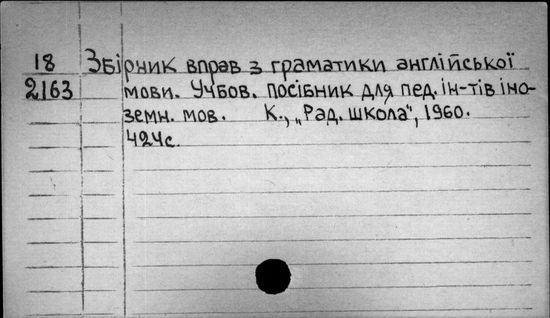 18 Збірник вправ з граматики англійської
2163 мови. Учбов. посібник для пед. ін-тів іно-
земн. мов. К., „Рад. школа", 1960.
424с.